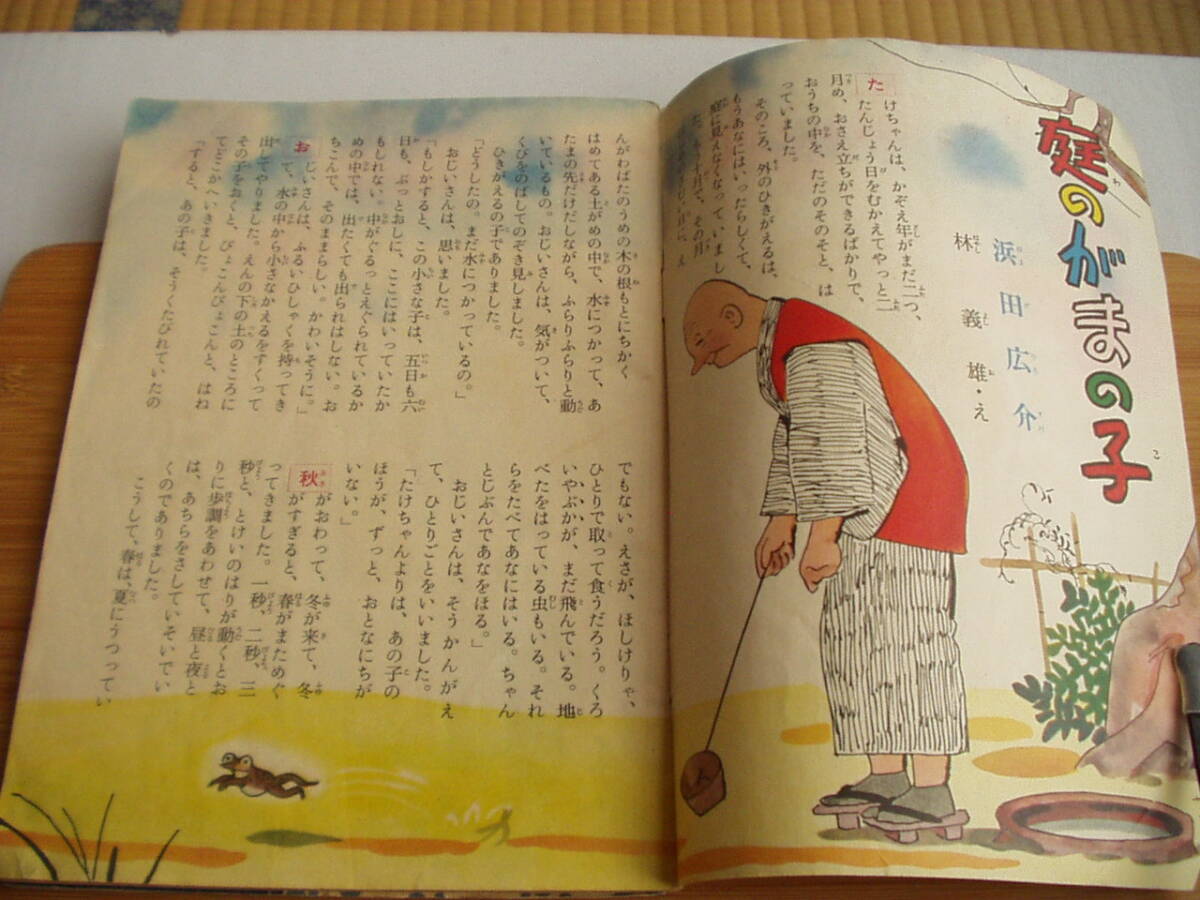 庭のがまの子
浜田広介
林義雄・え
たけちゃんは、かぞえ年がまだ二つ、
たんじょう日をむかえてやっと二
月め、おさえ立ちができるばかりで、
おうちの中を、ただのそのそと、は
っていました。
そのころ、外のひきがえるは、
もうあなにはいったらしくて、
庭に見えなくなっていまし
んがわばたのうめの木の根もとにちかく
はめてある土がめの中で、水につかって、あ
たまの先だけだしながら、ふらりふらりと動
いているもの。おじいさんは、気がついて、
くびをのばしてのぞき見しました。
ひきがえるの子でありました。
「どうしたの。まだ水につかっているの。」
おじいさんは、思いました。
「もしかすると、この小さな子は、五日も六
日も、ぶっとおしに、ここにはいっていたか
もしれない。中がぐるっとえぐられているか
めの中では、出たくても出られはしない。お
ちこんで、そのままらしい。かわいそうに。」
おじいさんは、ふるいひしゃくを持ってき
て、水の中から小さなかえるをすくって
出してやりました。えんの下の土のところに
その子をおくと、ぴょこんぴょこんと、はね
てどこかへいきました。
「すると、あの子は、そうくたびれていたの
でもない。えさが、ほしけりゃ、
ひとりで取って食うだろう。くろ
いやぶかが、まだ飛んでいる。地
べたをはっている虫もいる。それ
らをたべてあなにはいる。ちゃん
とじぶんであなをほる。」
おじいさんは、そうかんがえ
て、ひとりごとをいいました。
「たけちゃんよりは、あの子の
ほうが、ずっと、おとなにちが
いない。」
秋がおわって、冬が来て、冬
がすぎると、春がまためぐ
ってきました。一秒、二秒、三
秒と、とけいのはりが動くとお
りに歩調をあわせて、昼と夜と
は、あちらをさしていそいでい
くのでありました。
こうして、春は、夏にうつってい